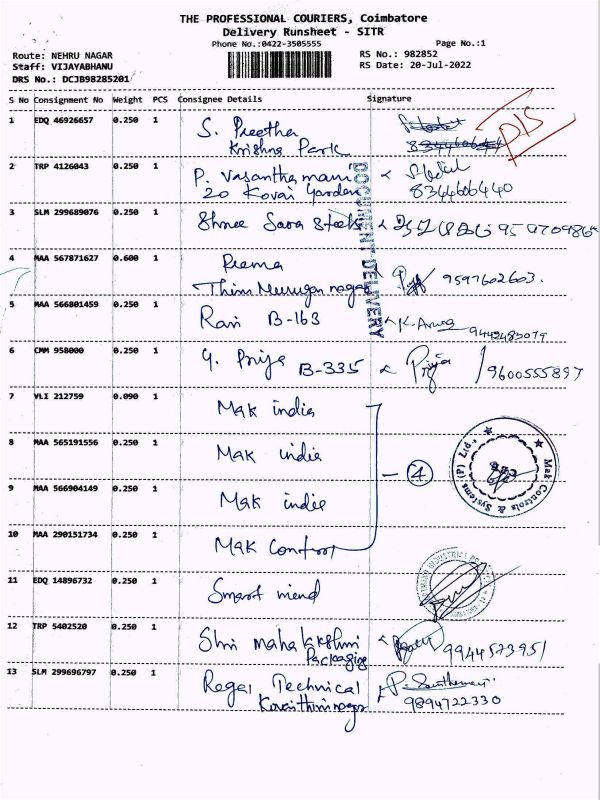 THE PROFESSIONAL COURIERS, Coimbatore
Delivery Runsheet - SITR
Phone No.:0422-3505555 Page No.:1
Route: NEHRU NAGAR RS No.: 982852
Staff: VIJAYABHANU RS Date: 20-Jul-2022
DRS No.: DCJB98285201
S No Consignment No Weight PCS Consignee Details Signature
1 EDQ 46926657 0.250 1 S. Preetha
Krishna Park
D/S
2 TRP 4126043 0.250 1 P. Vasanthamani
20 Kovai Garden 8344606440
DOCUMENT DELIVERY
3 SLM 299689076 0.250 1 Shree Sara Steels
4 MAA 567871627 0.600 1 Prema
Thiru Murugan nagar 9597602603.
5 MAA 566801459 0.250 1 Ravi B-163 K. Aruna
9442483079
6 CMM 958000 0.250 1 G. Priya B-335 Priya 9600555897
7 VLI 212759 0.090 1 Mak india
8 MAA 565191556 0.250 1 Mak india
- 4
Mak Controls & Systems (P) Ltd.,
9 MAA 566904149 0.250 1 Mak india
10 MAA 290151734 0.250 1 Mak Control
11 EDQ 14896732 0.250 1 Smart
12 TRP 5402520 0.250 1 Shri Mahalakshmi
Packaging 9944573951
13 SLM 299696797 0.250 1 Regal Technical
Kovaithirunagar 9894722330